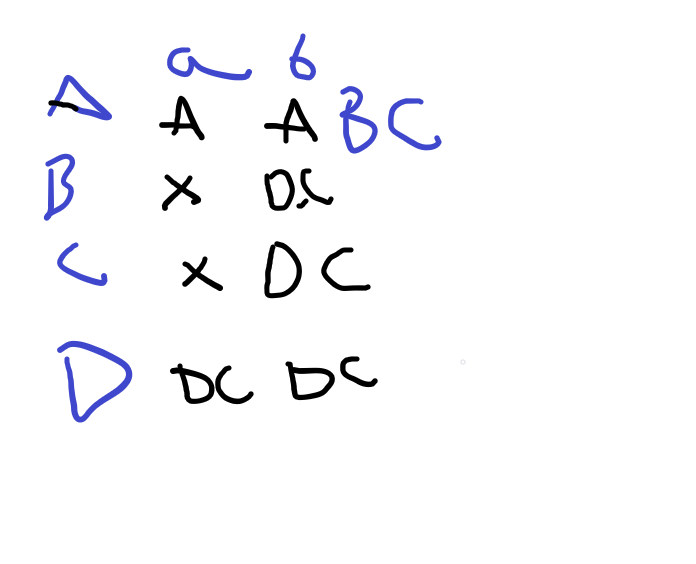 a b
A A A BC
B x DC
C x DC
D DC DC